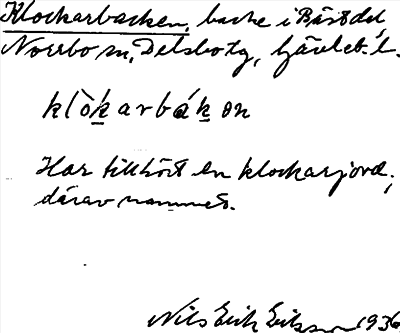 Klockarbacken, backe i Bästdal,
Norrbo sn, Delsbo tg, Gävleb. l.
klòkarbákən
Har tillhört en klockarjord,
därav namnet.
Nils Erik Eriksson 1936